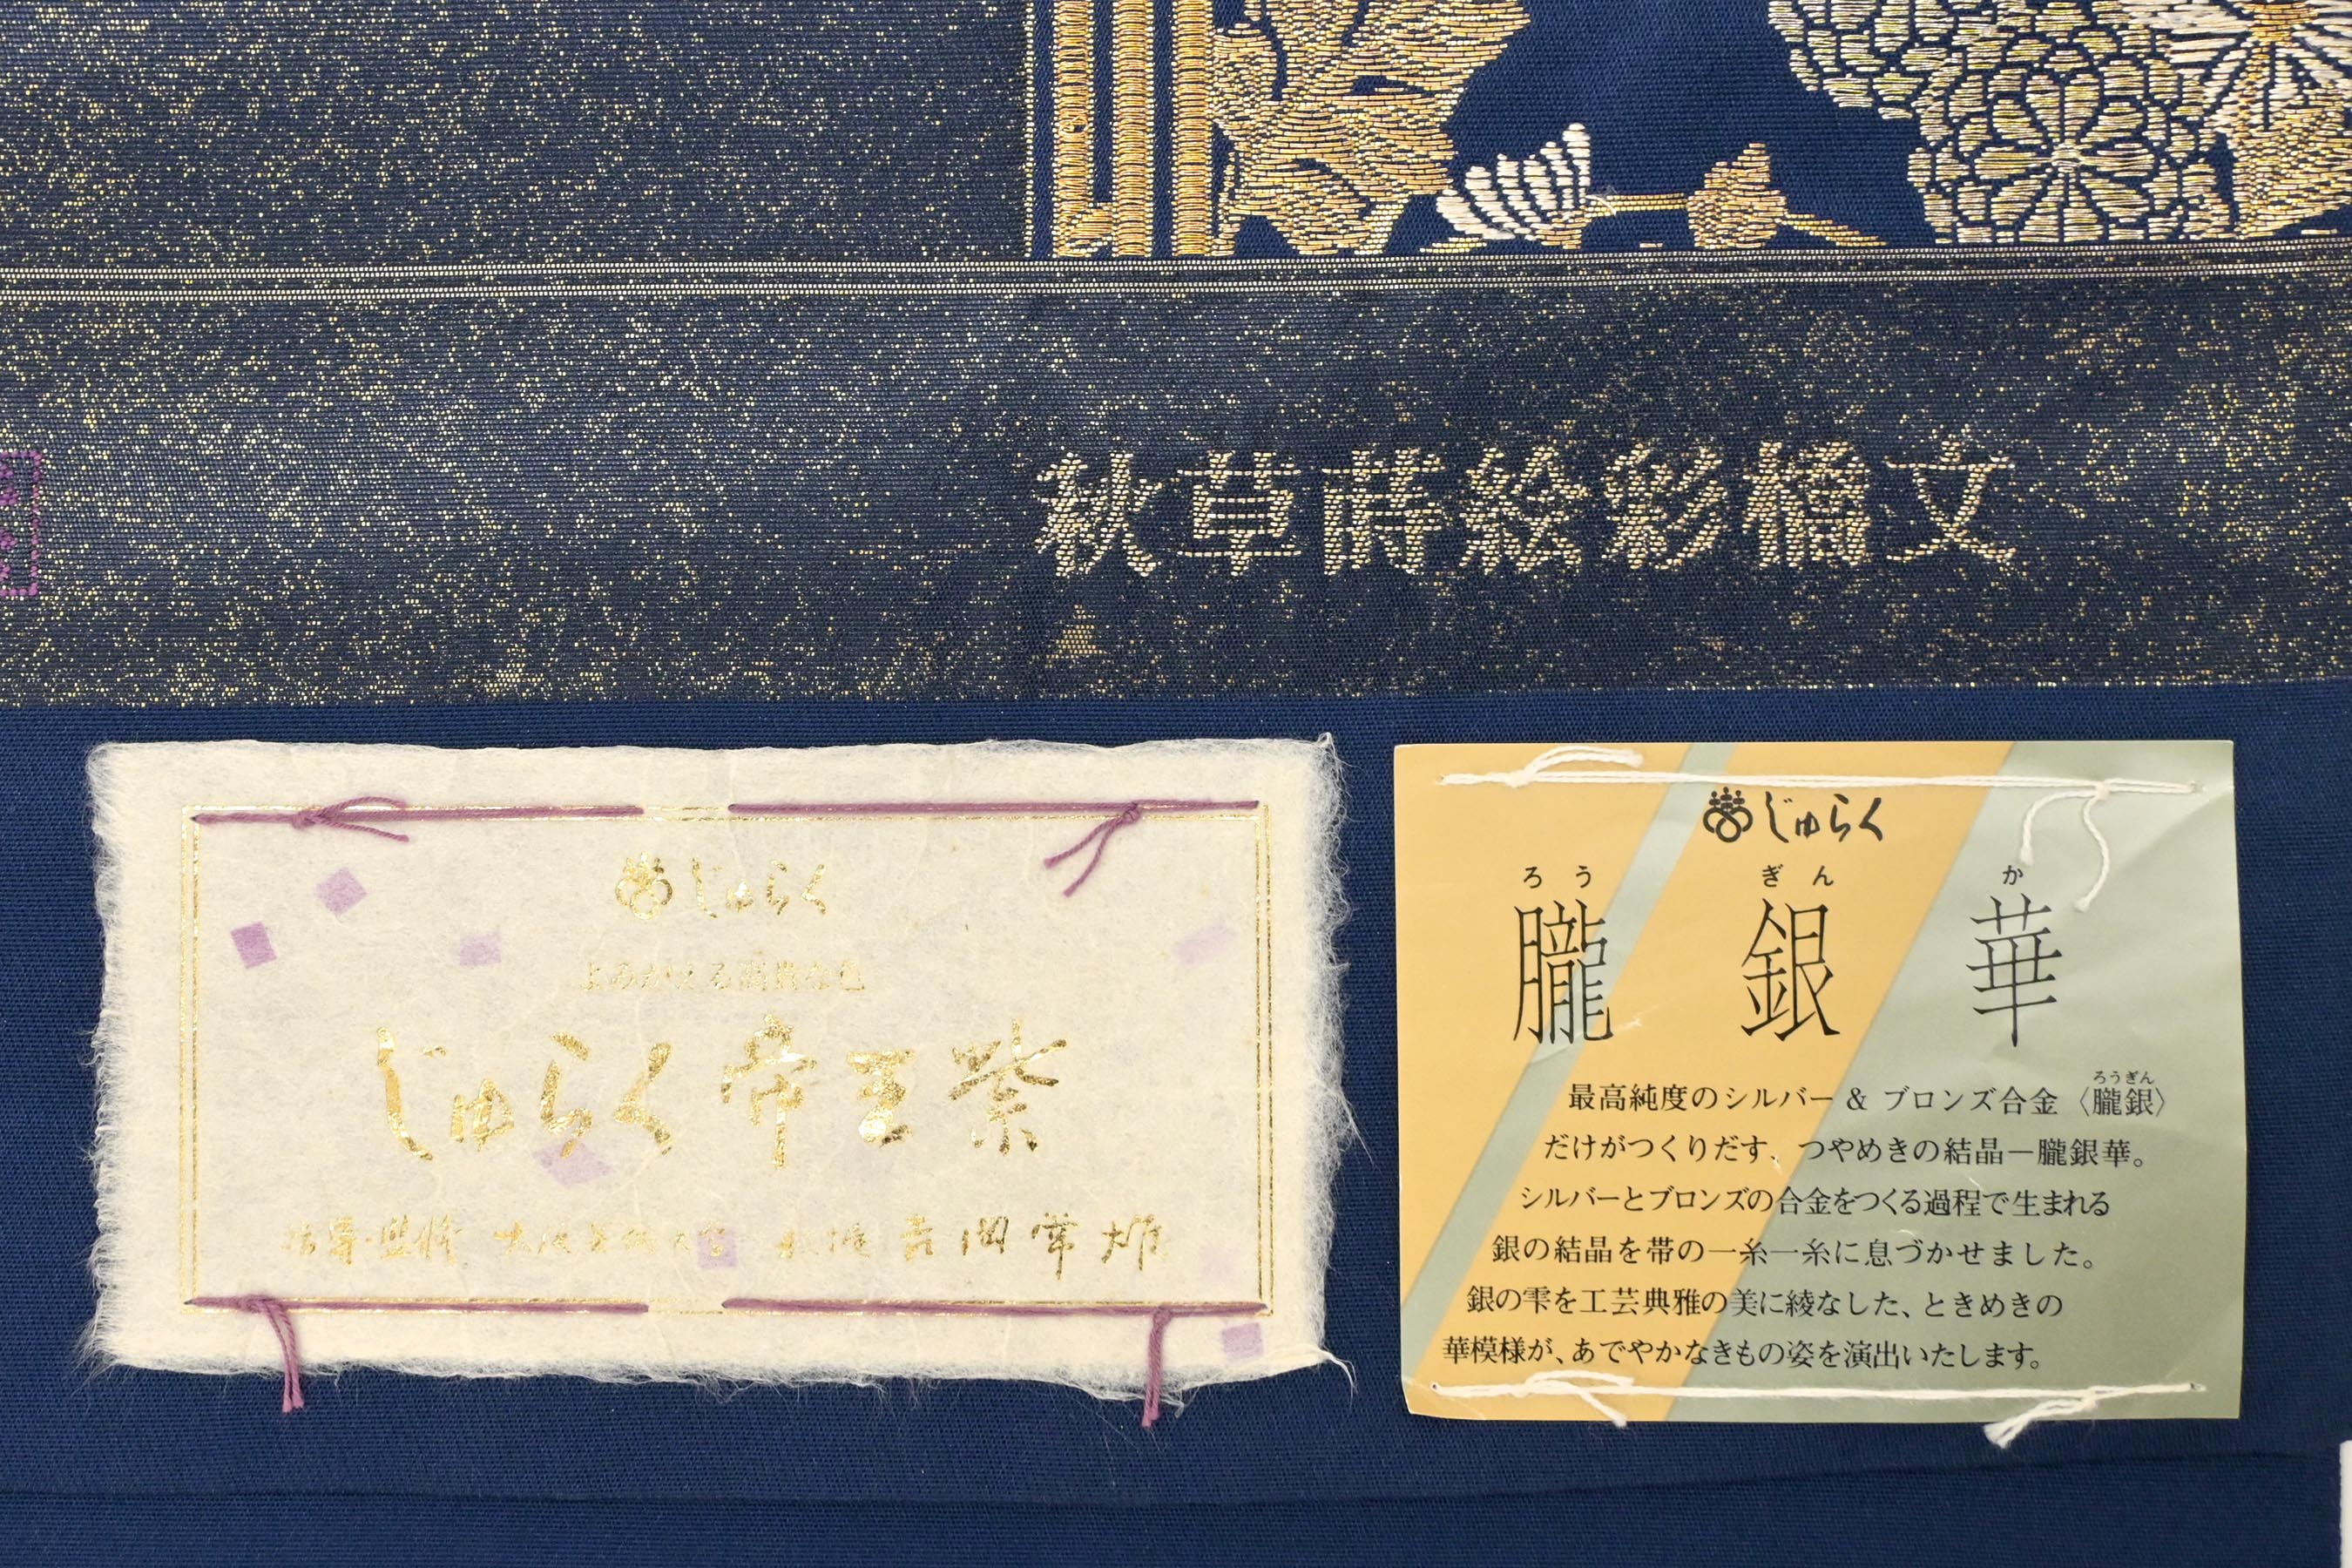 秋草蒔絵彩橋文
じゅらく
よみがえる高貴な色
じゅらく帝王紫
指導・監修 大阪芸術大学 教授 吉岡常雄
じゅらく
ろう ぎん か
朧銀華
ろうぎん
最高純度のシルバー & ブロンズ合金〈朧銀〉
だけがつくりだす、つやめきの結晶―朧銀華。
シルバーとブロンズの合金をつくる過程で生まれる
銀の結晶を帯の一糸一糸に息づかせました。
銀の雫を工芸典雅の美に綾なした、ときめきの
華模様が、あでやかなきもの姿を演出いたします。